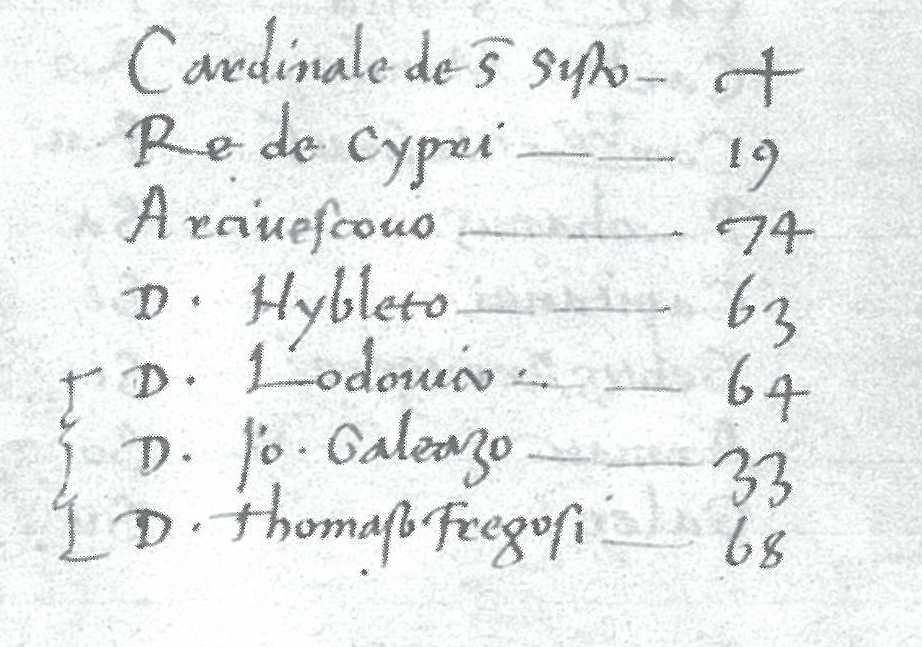 Cardinale de s̄ Sisto — 4
Re de Cypri — — 19
Arciuescouo — — 74
D. Hybleto — — 63
D. Lodouico — — 64
D. Jo. Galeazo — — 33
D. Thomaso Fregosi — 68